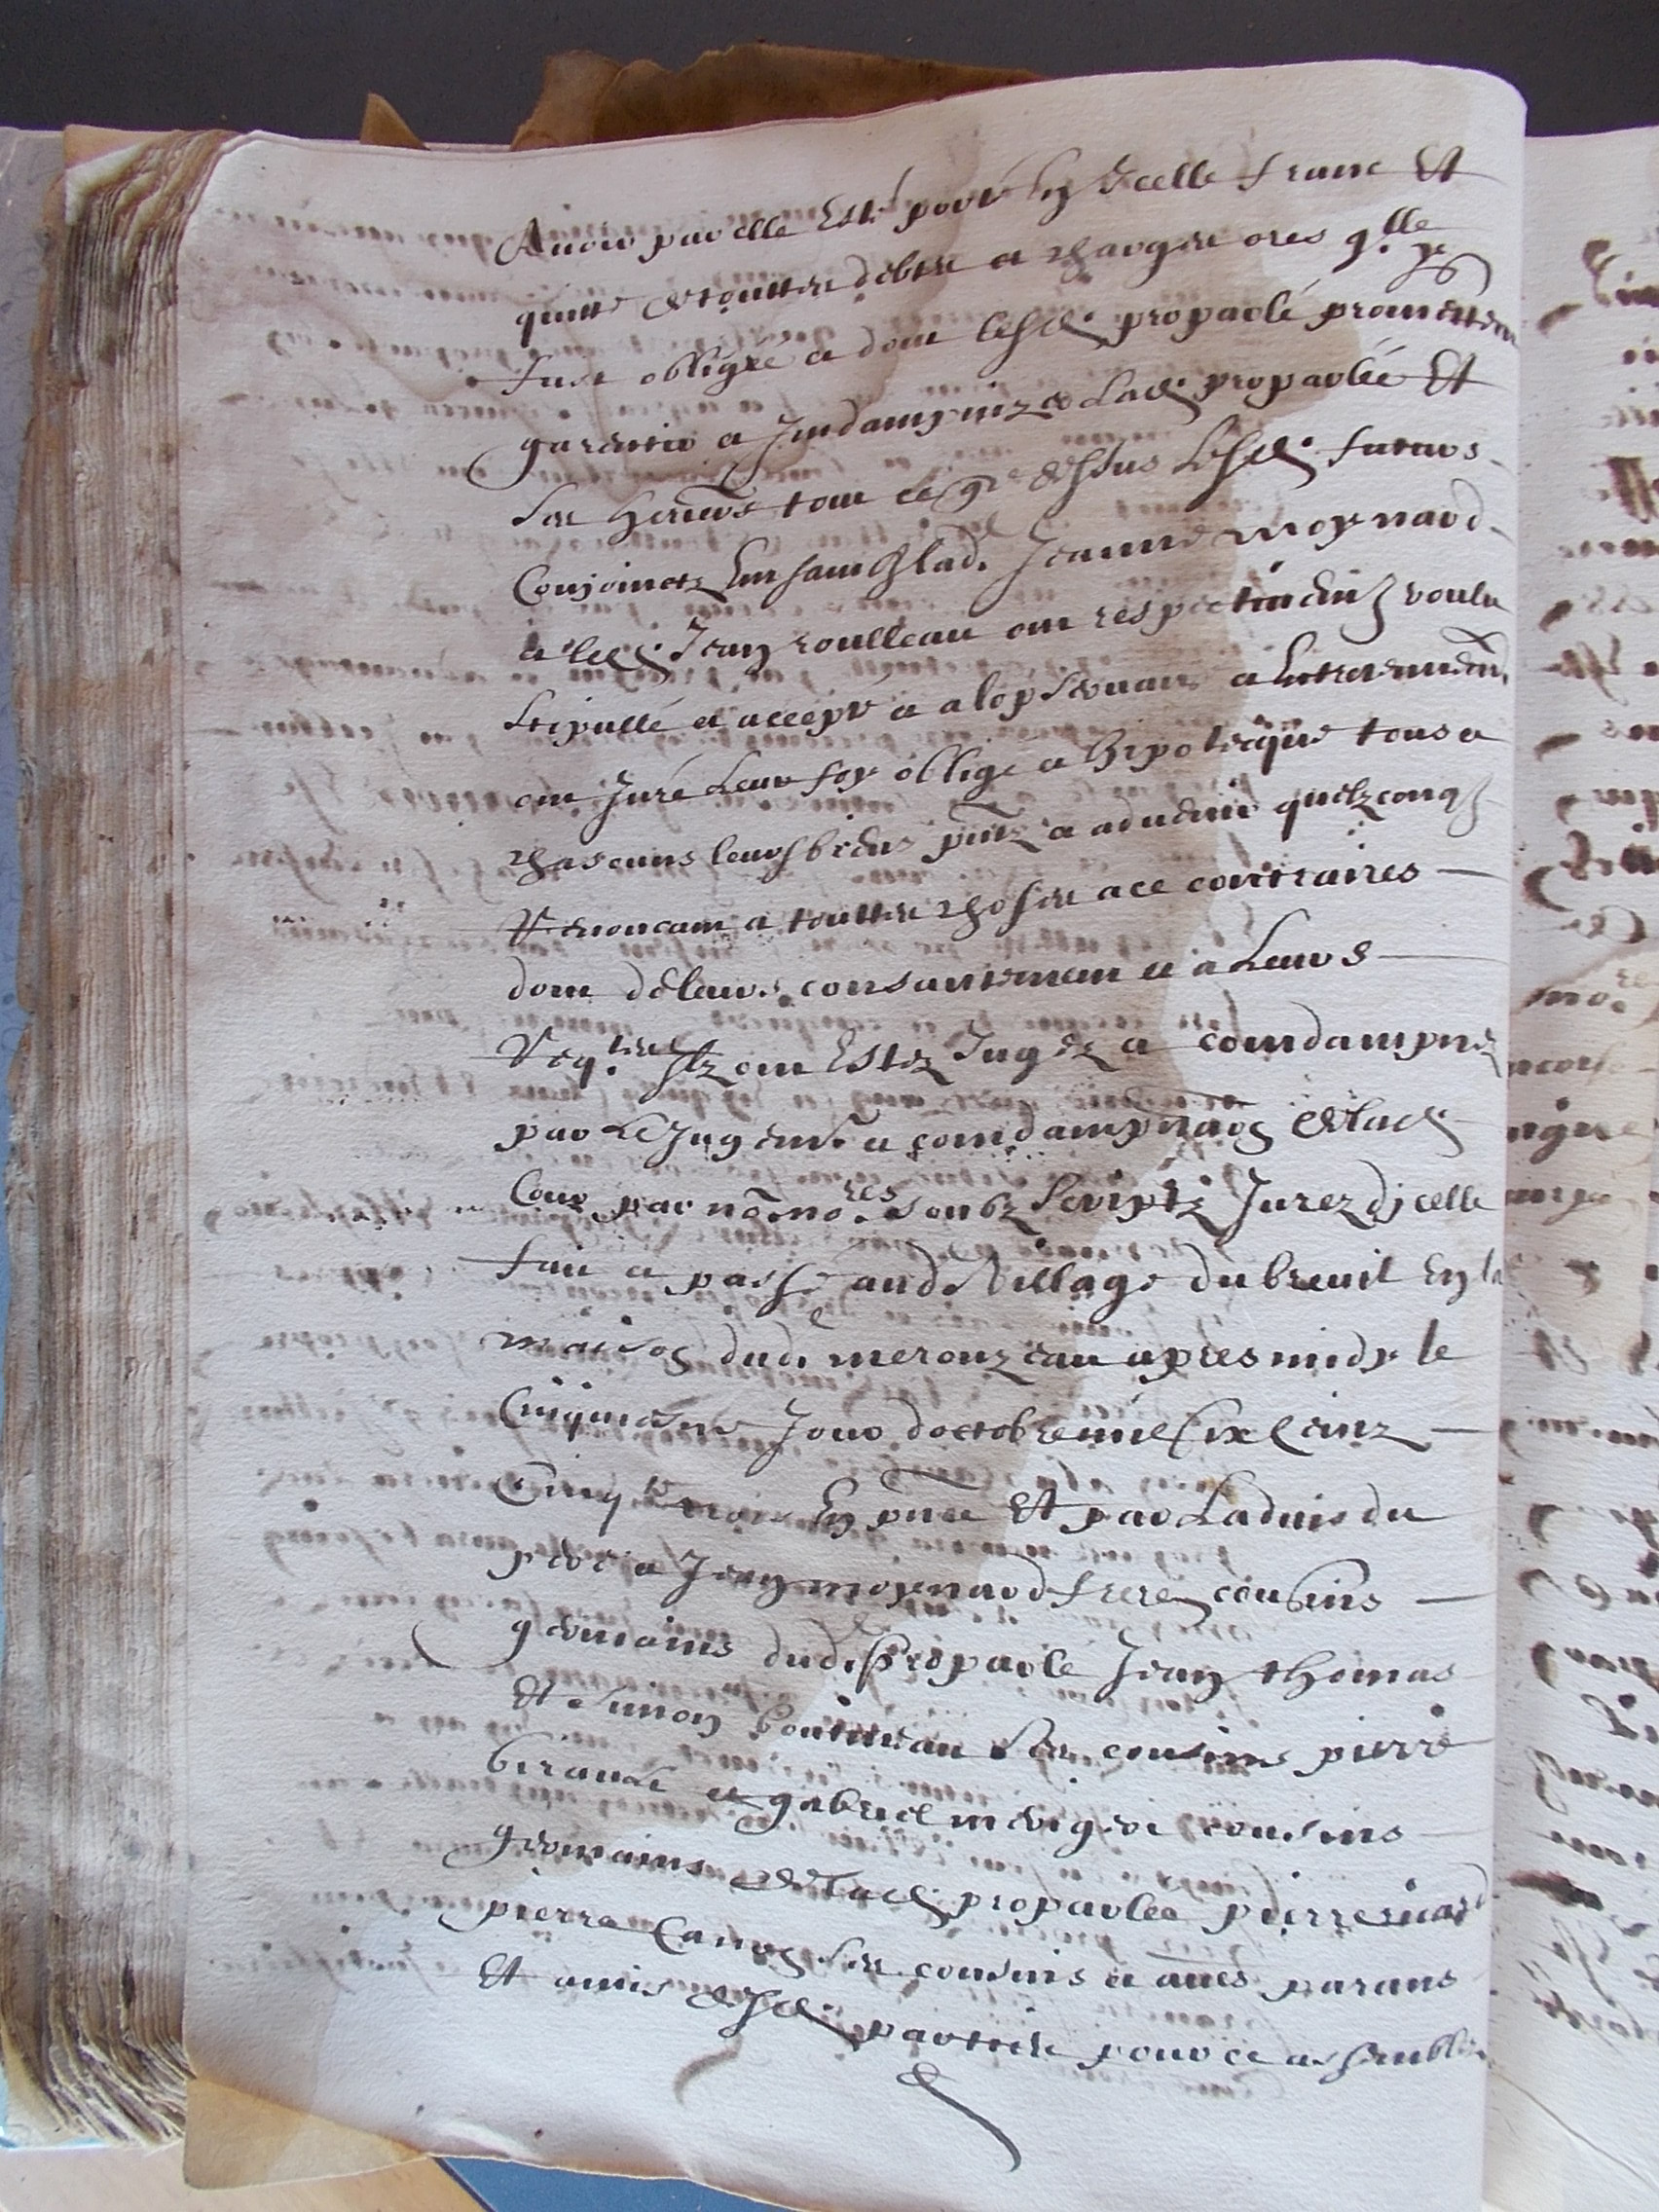 Avoir par elle esté porté en icelle franc Et
quitte de touttes debtes et charges ores qlle ny
fust obligée et dont lesd. proparlé promettent
garentir et Indampniz. lad. proparlée Et
ses heritiers tout ce q dessus Lesd. futurs
Conjoinctz Ensamble lad. Jeanne moynard
et led. Jean roulleau ont respectivem voulu
stipullé et accepté et a lobservan et Entretenemen
ont Juré Leur foy obligé et hipotecque tous et
chascuns leurs biens pntz et advenir quelzconq
Renoncant a touttes choses a ce contraires
dont de leurs consantemen et a Leurs
Reqtes Ilz ont Estez Jugez et comdampnez
par Le Jugemt et comdampnaon de lad.
Cour par no. nores soubz scriptz Jurez dicelle
fait et passé aud. Village du breuil En la
maison dud. merouzeau apres midy le
Cinquiesme Jour doctobre mil six centz
Cinqte trois En pnce Et par Ladvis du
pere et Jean moynard freres cousins
germains dud. proparlé Jean thomas
Et simon boutineau ses cousins pierre
beraud et gabriel mergere cousins
germains de lad. proparlée pierre
pierre Canon ses cousins et aues parans
Et amis desd. parties pour ce assembles